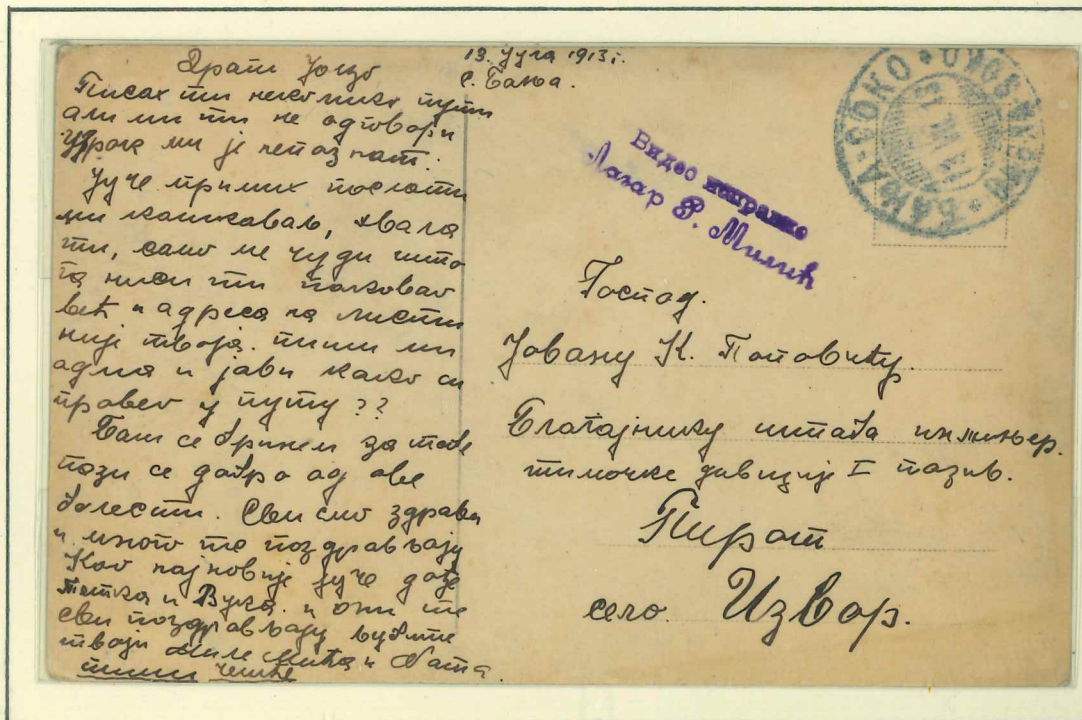 13. Јула 1913 г.
С. Бања.
Драги Јоцо
Писах ти неколико пути
али ми ти не одговори
узрок ми је непознат.
Јуче примих послати
ми качкаваљ, хвала
ти, само ме чуди што
га ниси ти паковао
већ и адреса на листи
није твоја. пиши ми
одма и јави како си
провео у путу ??
Баш се бринем за тебе
пази се добро од ове
болести. Сви смо здрави
и много те поздрављају
Као најновије јуче дође
Тетка и Вука. и они те
сви поздрављају љубите
твоји Миле и
пиши чешће
Видео
Лазар Р. Милић
БАЊА-СОКО
Господ.
Јовану К. Поповићу.
Благајнику штаба инжињер.
тимочке дивизије I позив.
Пирот
село Извор.